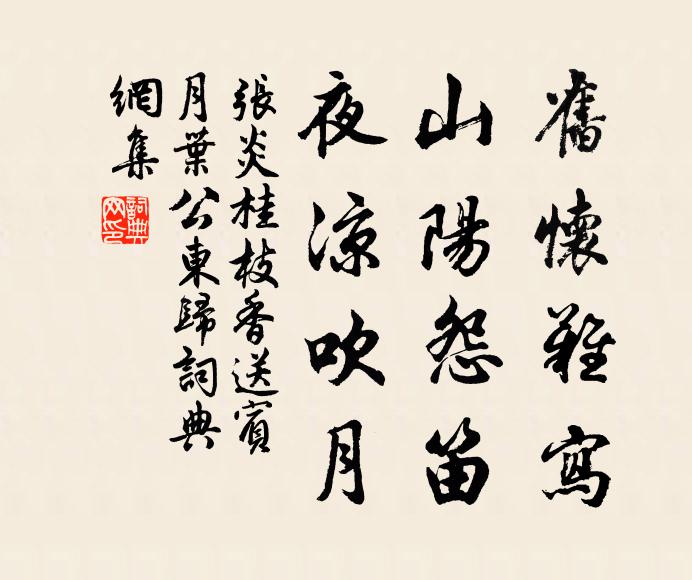 舊懷難寫
山陽怨笛
夜涼吹月
張炎桂枝香送賓
月葉公東歸詞典
網集
詞典
网印